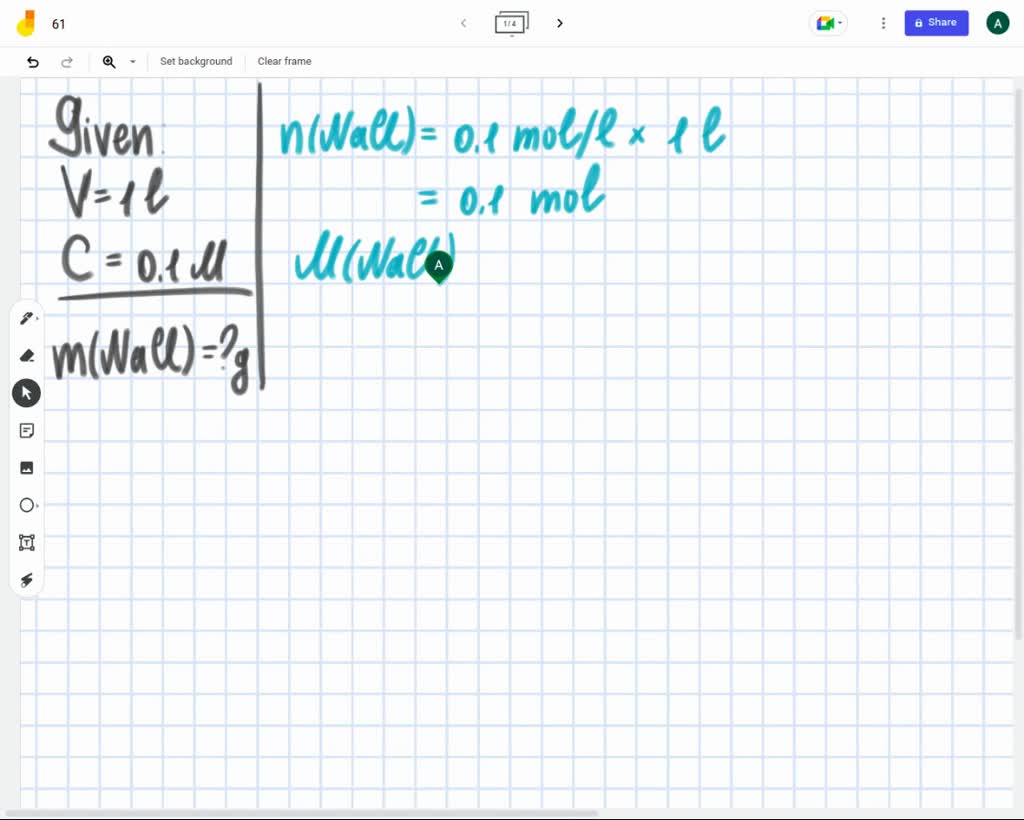 61
1/4
Share
A
Set background
Clear frame
Given:
V=1l
C = 0.1 M
m(NaCl)=?g
n(NaCl)= 0.1 mol/l × 1 l
= 0.1 mol
M(NaCl)
A